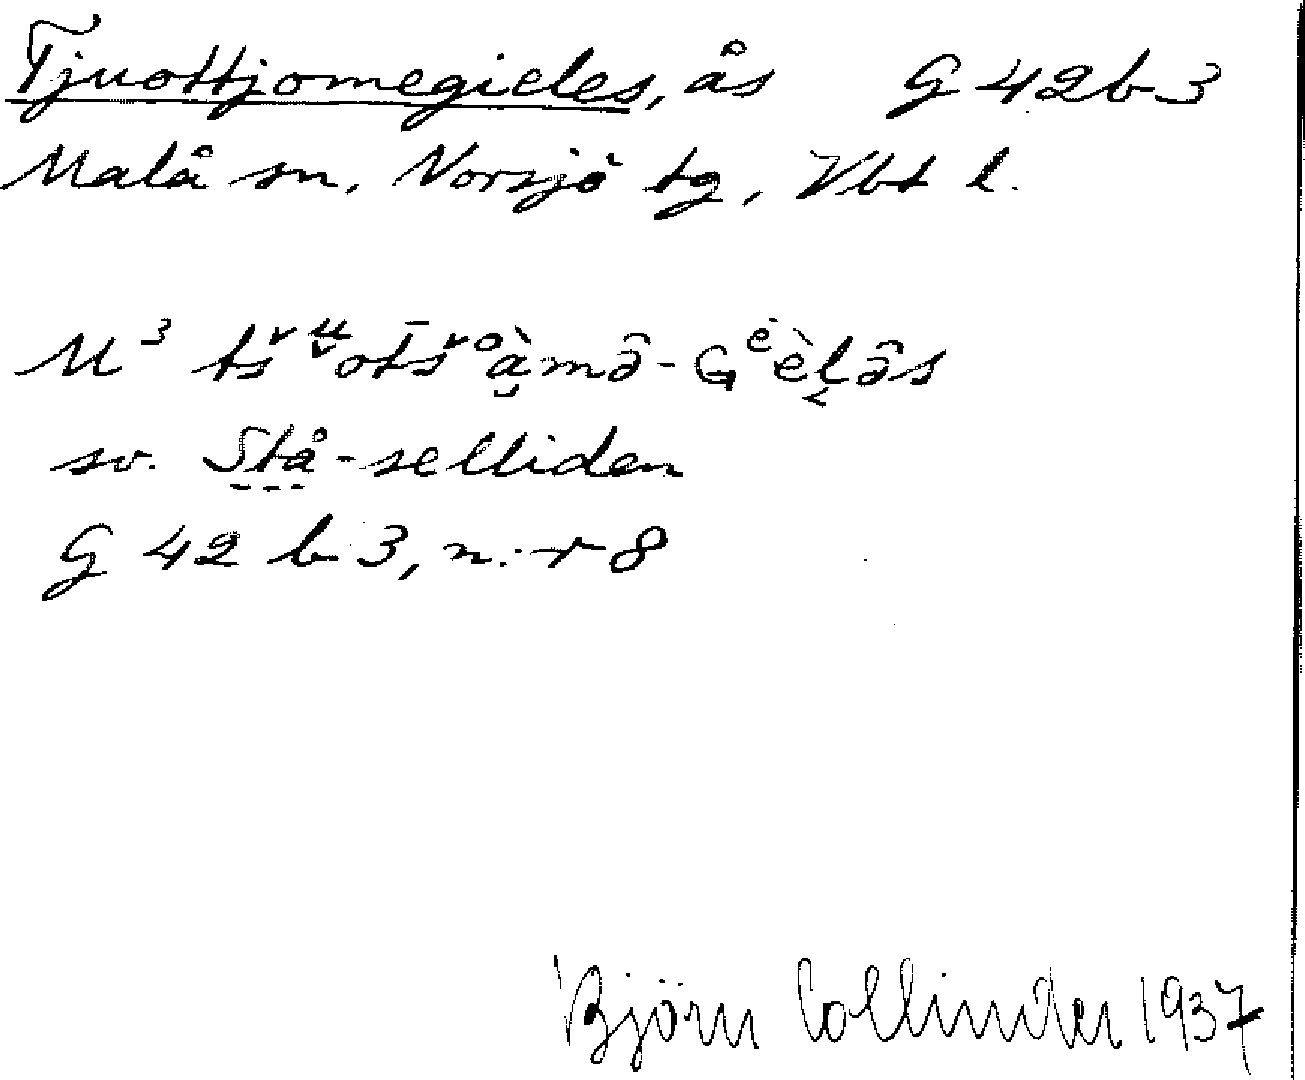 Tjuottjomegieles, ås G 42 b 3
Malå sn, Norsjö tg, Vbt l.
M³
sv. Stå-selliden
G 42 b 3, n:r 8
Björn Collinder 1937